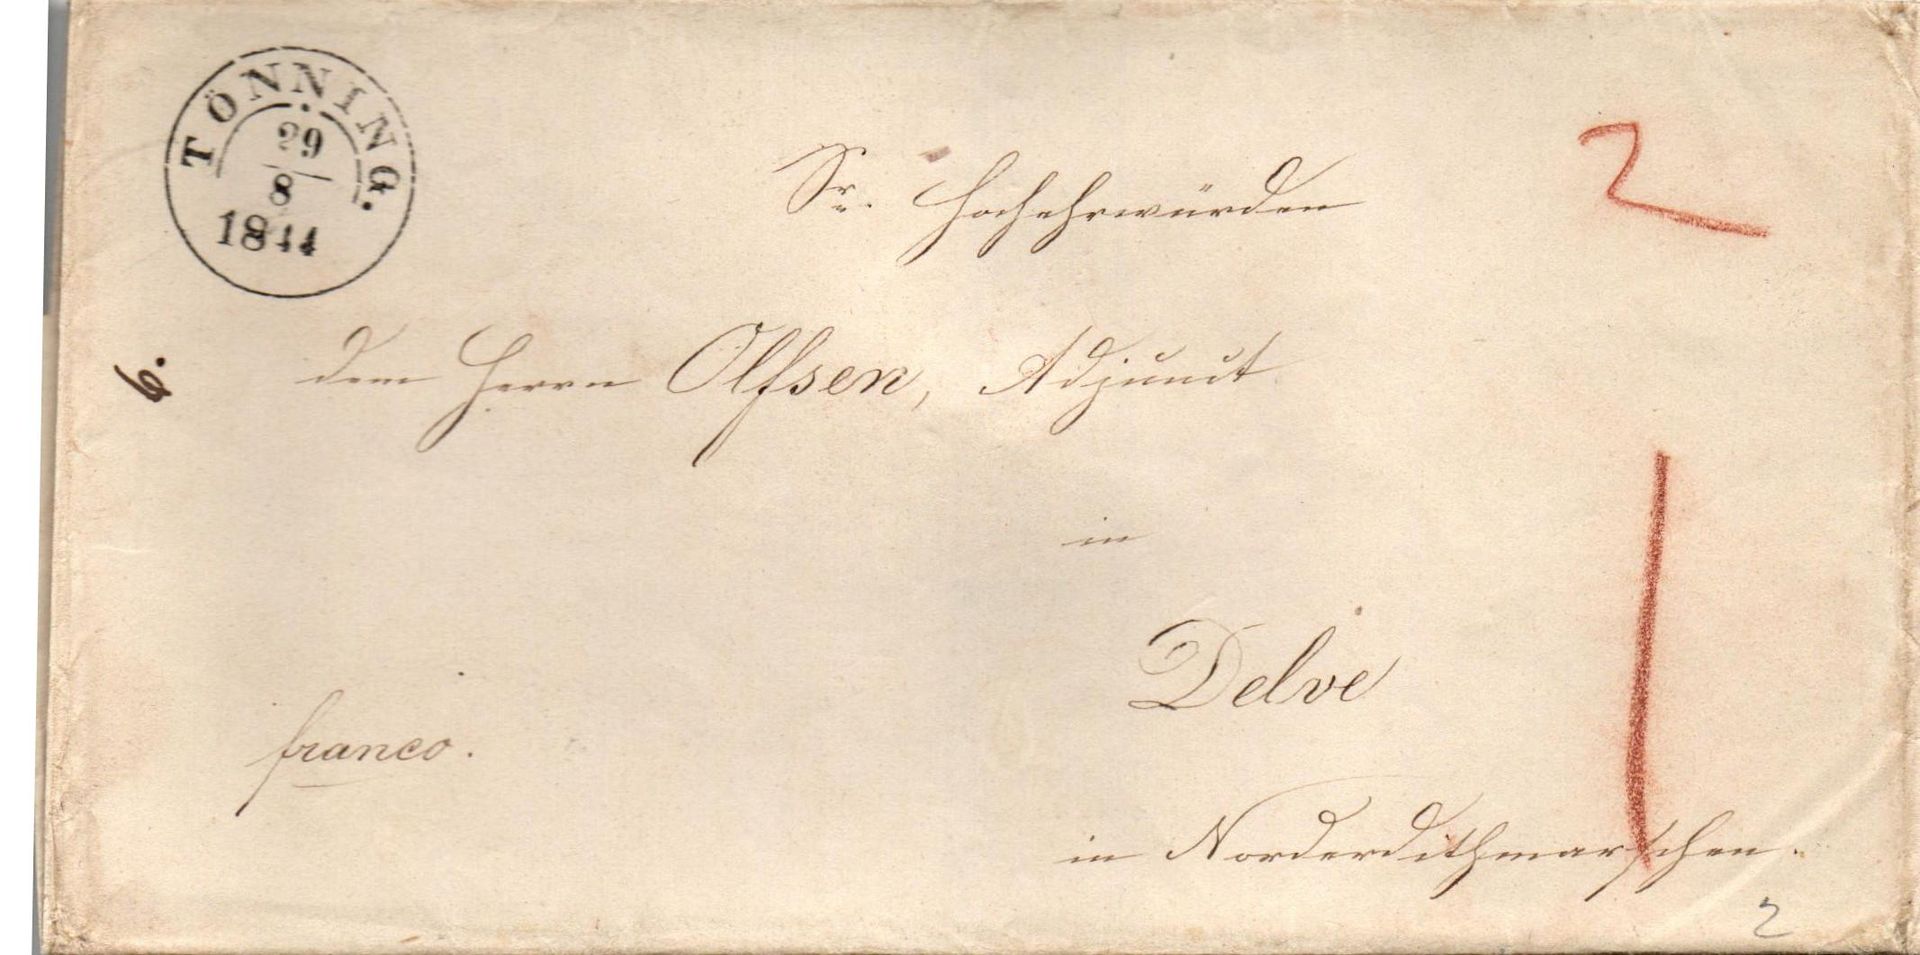 TÖNNING.
29
8
1844
2
Sr. Hochehrwürden
6.
dem Herrn Olfsen, Adjunct
in
Delve
franco.
in Norderdithmarschen.
2